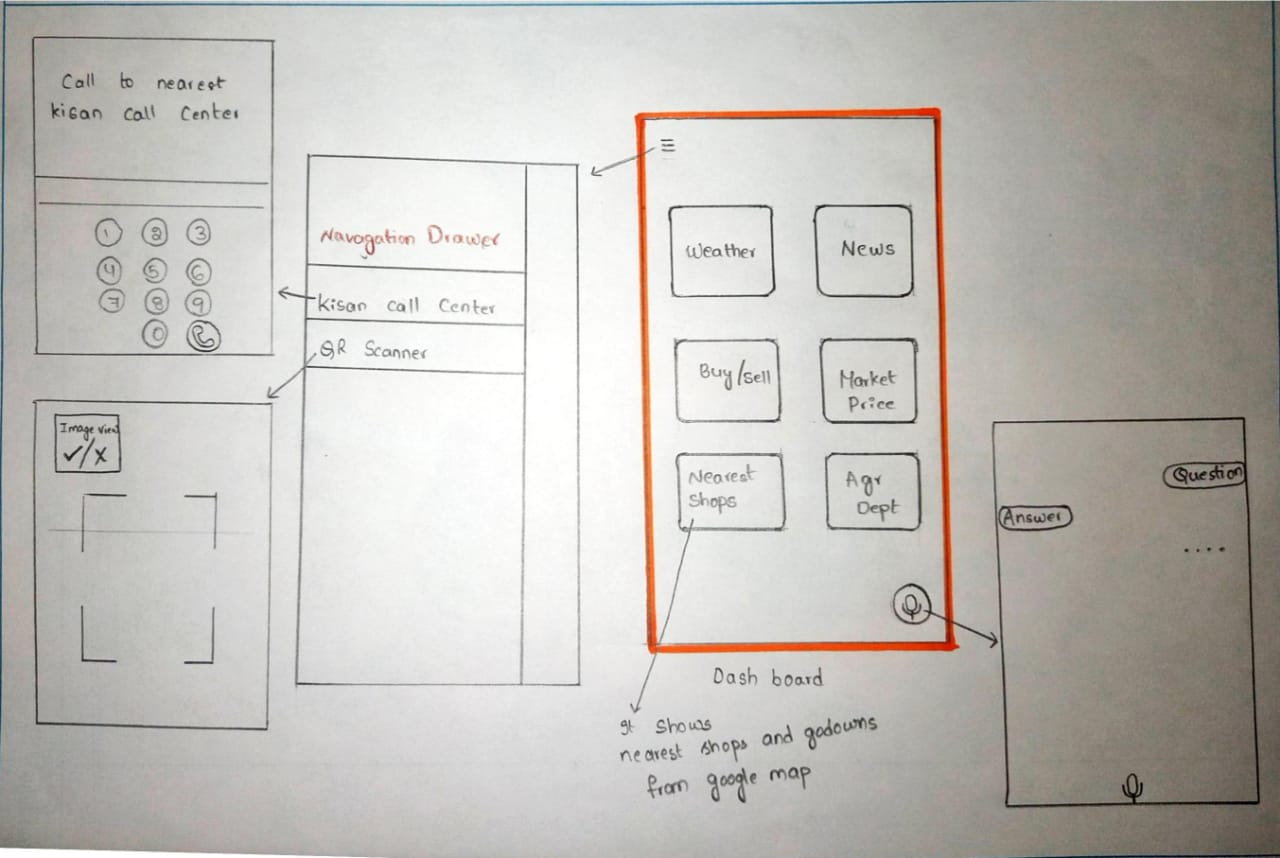 Call to nearest
kisan call Center
1 2 3
4 5 6
7 8 9
0
Image view
✓/X
Navogation Drawer
kisan call Center
QR Scanner
Weather
News
Buy/sell
Market
Price
Nearest
Shops
Agr
Dept
Dash board
It Shows
nearest shops and godowns
from google map
Question
Answer
....